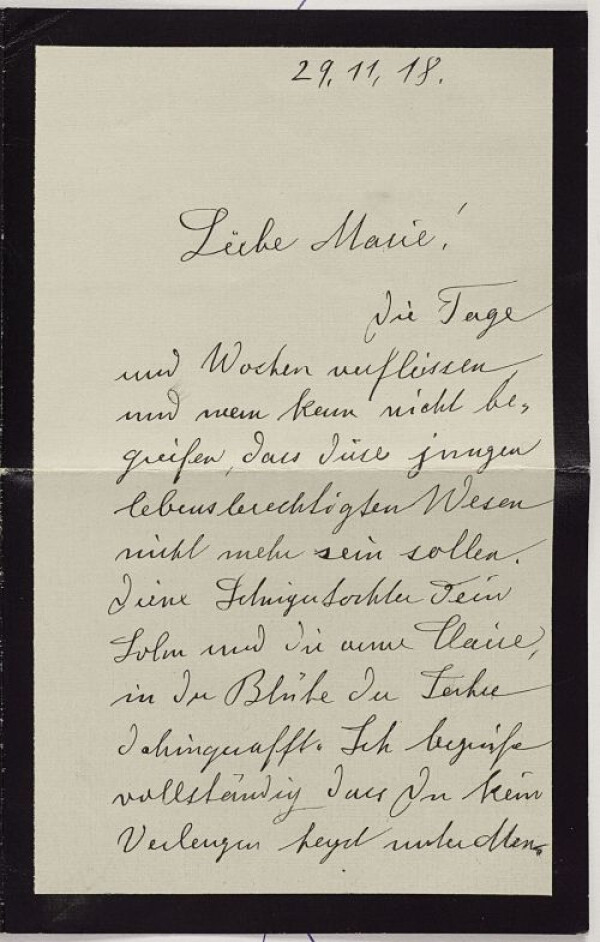 29. 11. 18.
Liebe Marie!
Die Tage
und Wochen verfliessen,
und man kann nicht be-
greifen, dass diese jungen
lebensberechtigten Wesen
nicht mehr sein sollen.
Deine Schwigertochter Dein
Sohn und die arme Claire,
in der Blüte der Jahre
dahingerafft. Ich begreife
vollständig dass Du kein
Verlangen hegst unter Men-